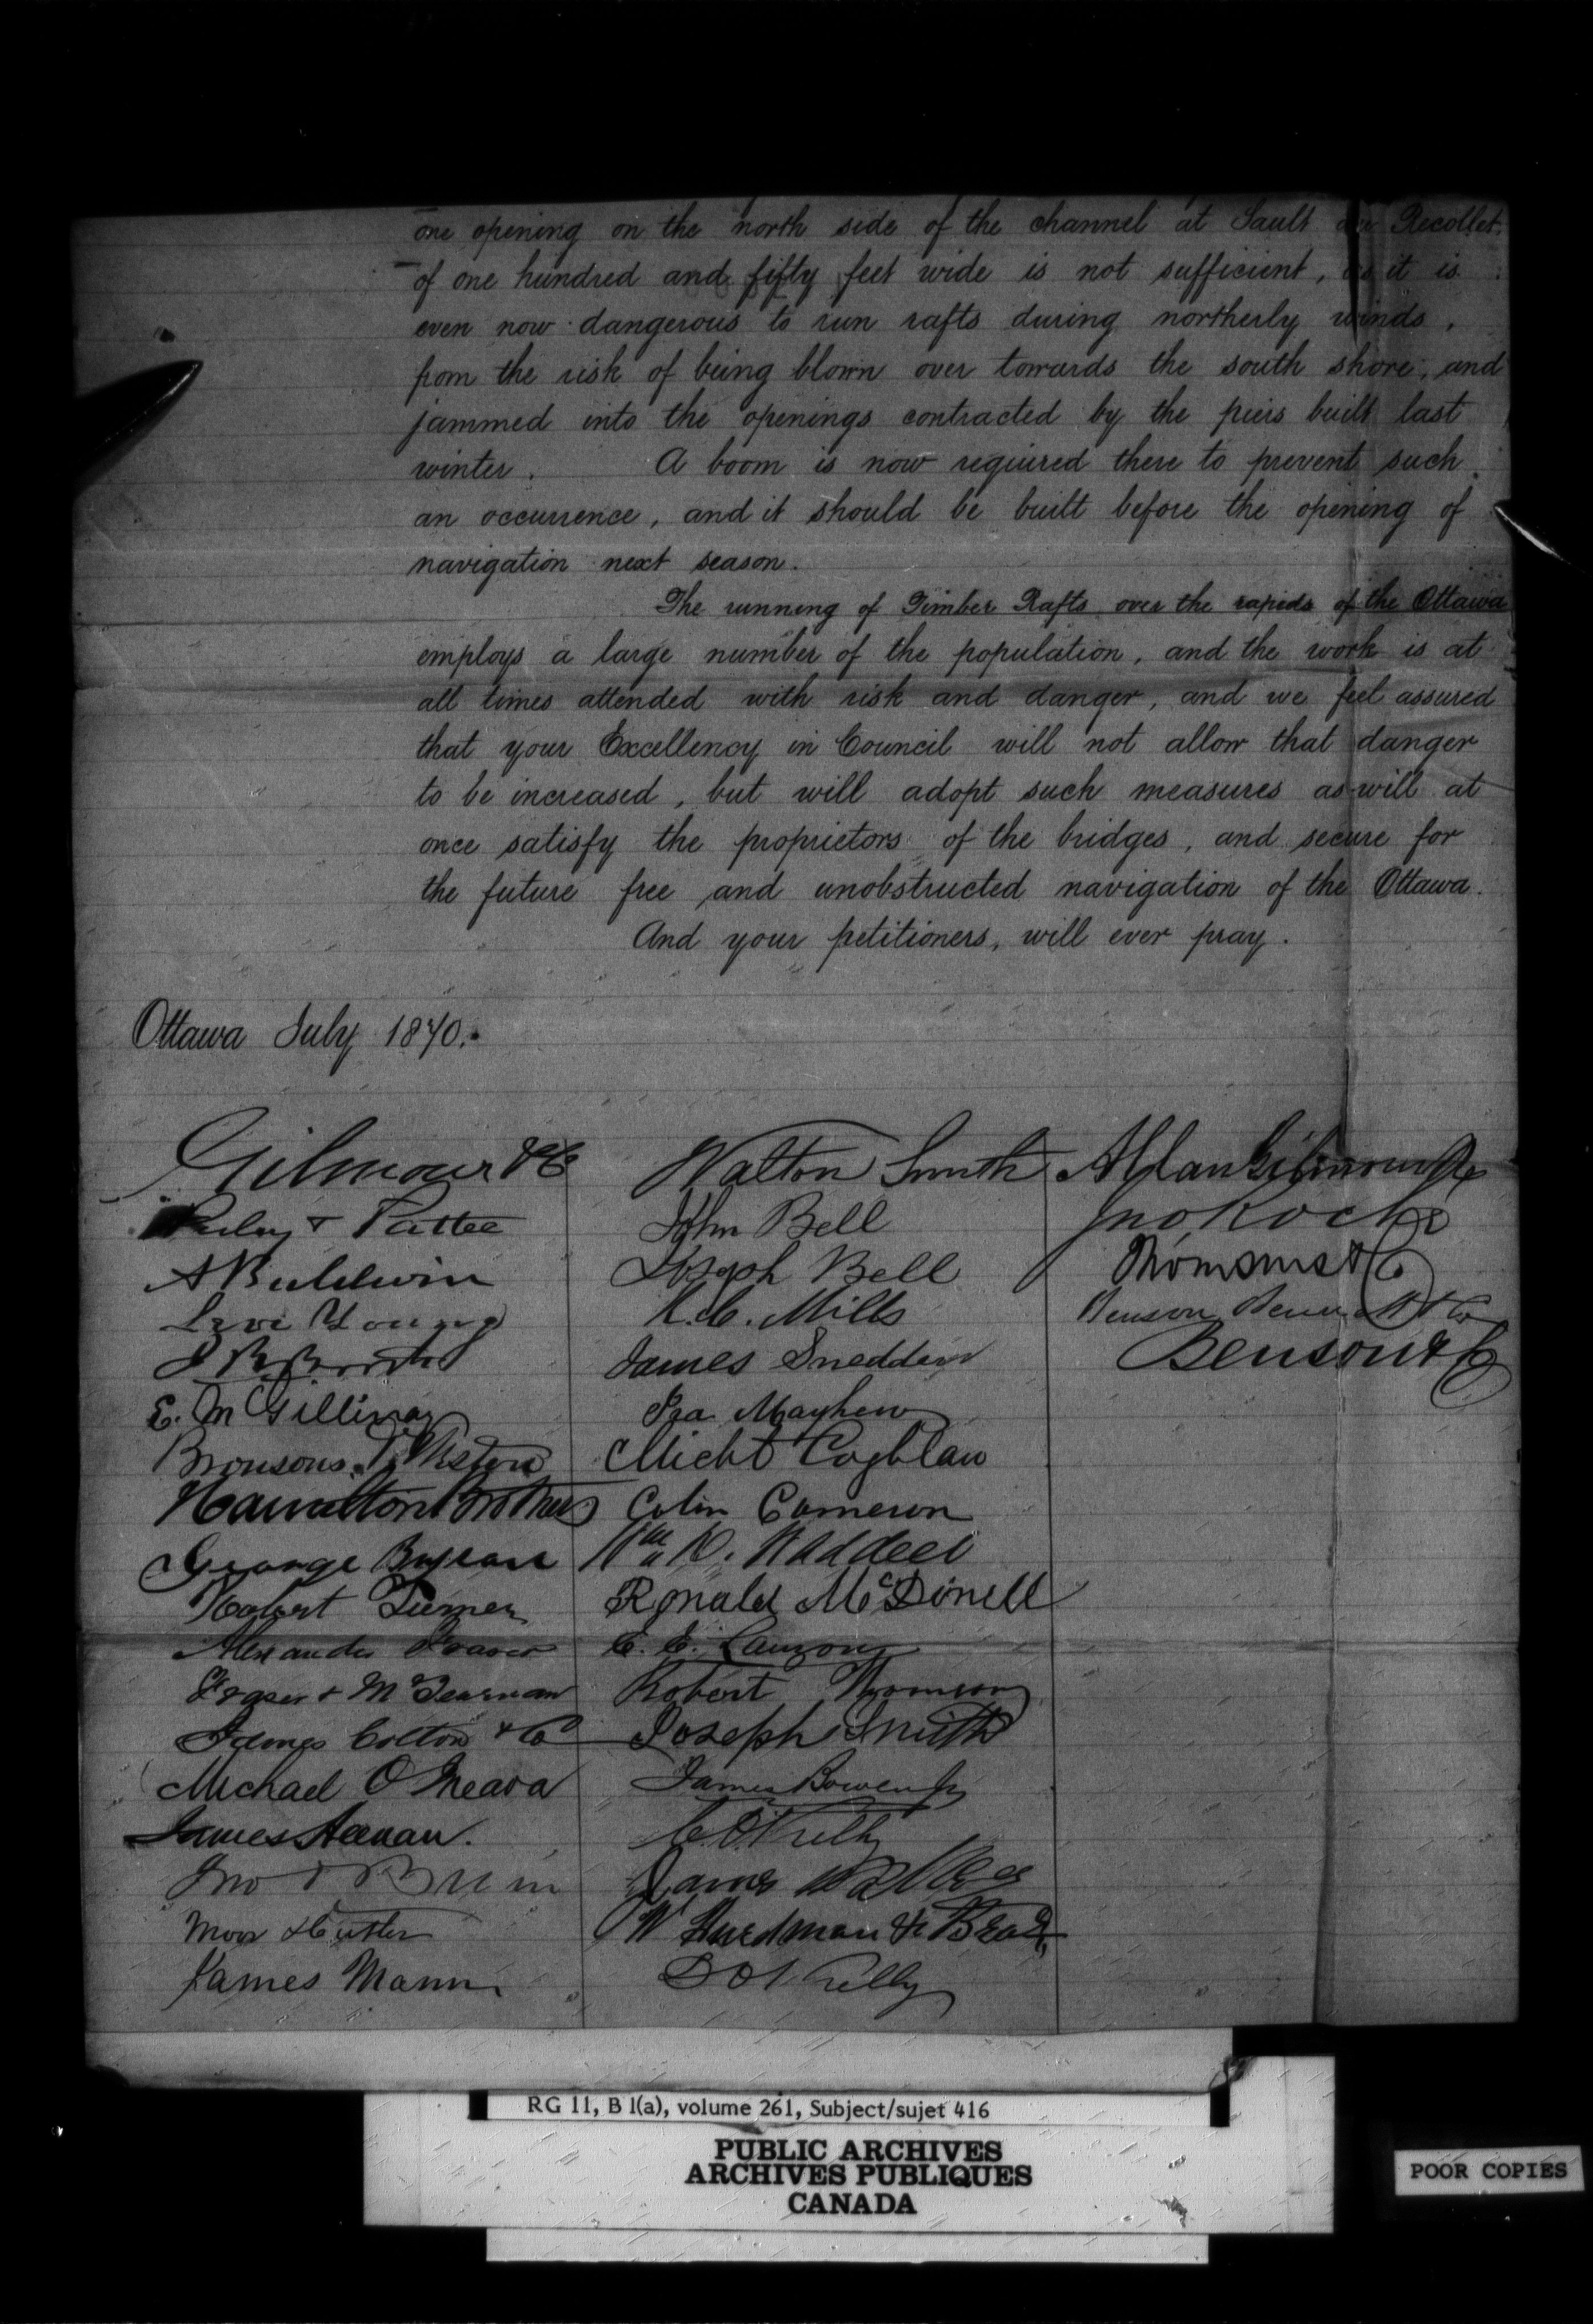 one opening on the north side of the channel at Sault au Recollet,
of one hundred and fifty feet wide is not sufficient, as it is
even now dangerous to run rafts during northerly winds,
from the risk of being blown over towards the south shore, and
jammed into the openings contracted by the piers built last
winter. A boom is now required there to prevent such
an occurrence, and it should be built before the opening of
navigation next season.
The running of Timber Rafts over the rapids of the Ottawa
employs a large number of the population, and the work is at
all times attended with risk and danger, and we feel assured
that your Excellency in Council will not allow that danger
to be increased, but will adopt such measures as will at
once satisfy the proprietors of the bridges, and secure for
the future free and unobstructed navigation of the Ottawa.
And your petitioners, will ever pray.
Ottawa July 1870.
Gilmour & Co
Perley & Pattee
A Baldwin
Levi Young
J R Booth
E. McGillivray
Bronsons & Weston
Hamilton Brothers
George Bryson
Robert Turner
Alexander Fraser
Fraser & McTiernan
James Colton & Co
Michael O Meara
James Heenan.
Jno
Moor & Cutler
James Mann
Walton Smith
John Bell
Joseph Bell
R. C. Mills
James Snedden
Ira Mayhew
Michl Coghlan
Colin Cameron
Wm R. Waddell
Ronald McDonell
E. E. Lauzon
Robert Thomson
Joseph Smith
James Bowen Jr
C. O'Kelly
James
W Hurdman & Bros
D O'Kelly
Allan Gilmour
Jno Roche
Thomsons & Co
Benson Bennett & Co
Benson & Co
RG 11, B 1(a), volume 261, Subject/sujet 416
PUBLIC ARCHIVES
ARCHIVES PUBLIQUES
CANADA
POOR COPIES